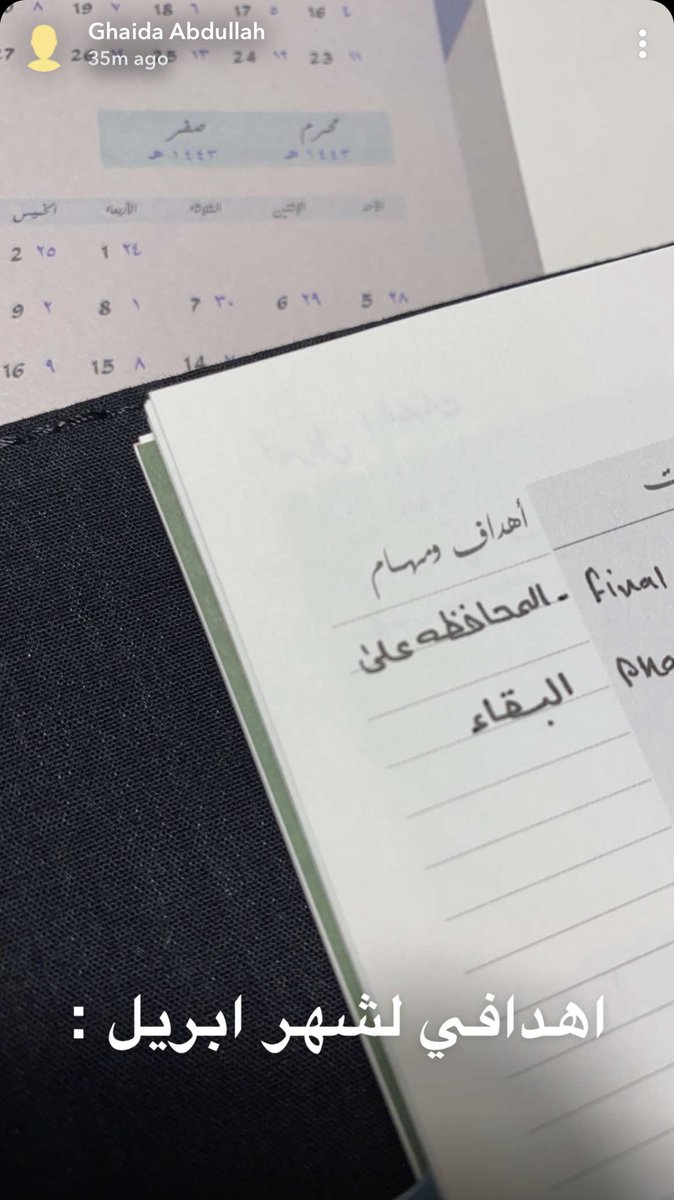 Ghaida Abdullah
35m ago
19 ٧ 18 ٦ 17 ٥ 16 ٤
24 ١٢ 23 ١١
محرم صفر
١٤٤٣ هـ ١٤٤٣ هـ
الأحد الإثنين الثلاثاء الأربعاء الخميس
1 ٢٤ 2 ٢٥
5 ٢٨ 6 ٢٩ 7 ٣٠ 8 ١ 9 ٢
14 15 ٨ 16 ٩
أهداف ومهام
- المحافظه على
البقاء
final
اهدافي لشهر ابريل :